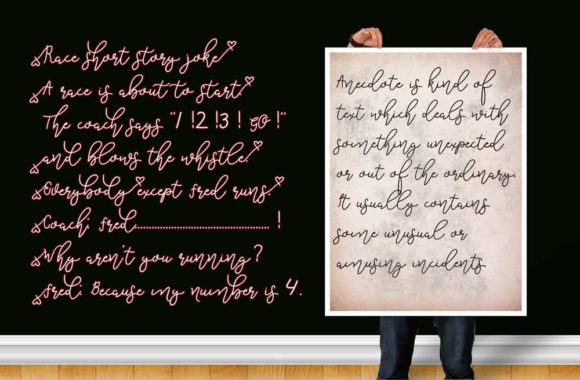 Race short story joke
A race is about to start
The coach says "1 !2 !3 ! go !"
and blows the whistle.
Everybody except fred runs.
Coach: fred............................................ !
Why aren't you running?
fred: Because my number is 4.
Anecdote is kind of
text which deals with
something unexpected
or out of the ordinary.
It usually contains
some unusual or
amusing incidents.